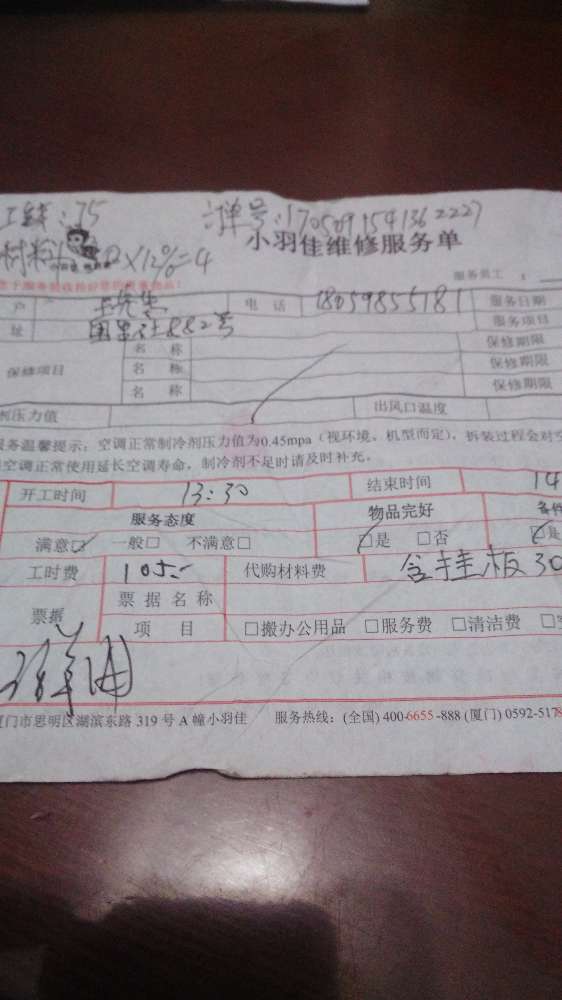 工钱：75 订单号：1705091541362227
小羽佳维修服务单
材料 ×12%=4
服务员工：
户 王先生 电话 18059855181 服务日期
址 882号 服务项目
保修项目 名称 保修期限
名称 保修期限
名称 保修期限
剂压力值 出风口温度
服务温馨提示：空调正常制冷剂压力值为0.45mpa（视环境、机型而定），拆装过程会对空
空调正常使用延长空调寿命，制冷剂不足时请及时补充。
开工时间 13:30 结束时间 14
服务态度 物品完好 备件
满意☑ 一般□ 不满意□ ☑是 □否 ☑是
工时费 105 代购材料费 含挂板30
票据 票据名称
项目 □搬办公用品 □服务费 □清洁费
厦门市思明区湖滨东路 319 号 A 幢小羽佳 服务热线：(全国) 400-6655-888 (厦门) 0592-5178